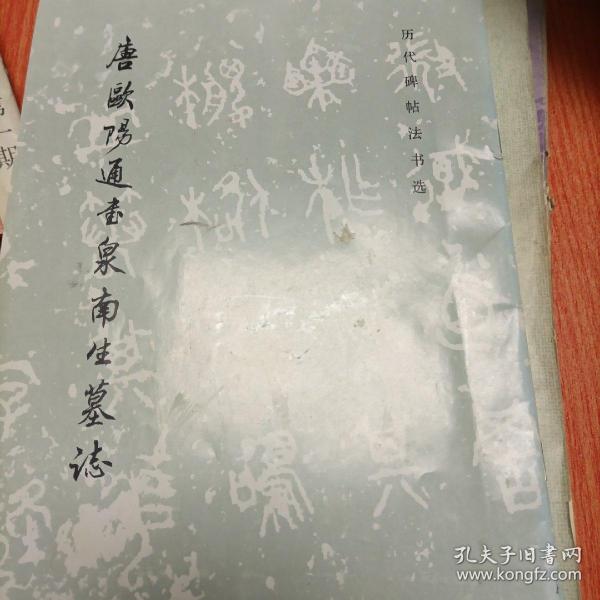 历代碑帖法书选
唐歐陽通書泉南生墓誌
第一期
孔夫子旧书网
www.kongfz.com